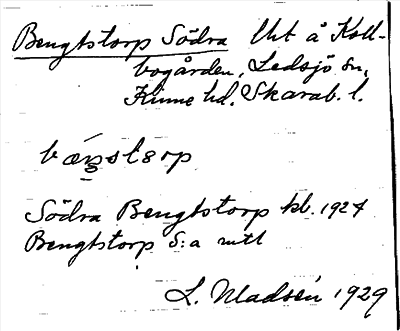 Bengtstorp Södra Uht å Koll-
bogården, Ledsjö sn,
Kinne hd. Skarab. l.
Södra Bengtstorp kb. 1927
Bengtstorp S:a mtl
L. Madsén 1929